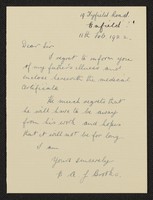 Fyfield Road,
Enfield
11th Feb. 190
Dear Sir
I regret to inform you
of my father's illness and
enclose herewith the medical
certificate.
He much regrets that he
will have to be away
from his work and hopes
that it will not be for long
I am
Yours sincerely